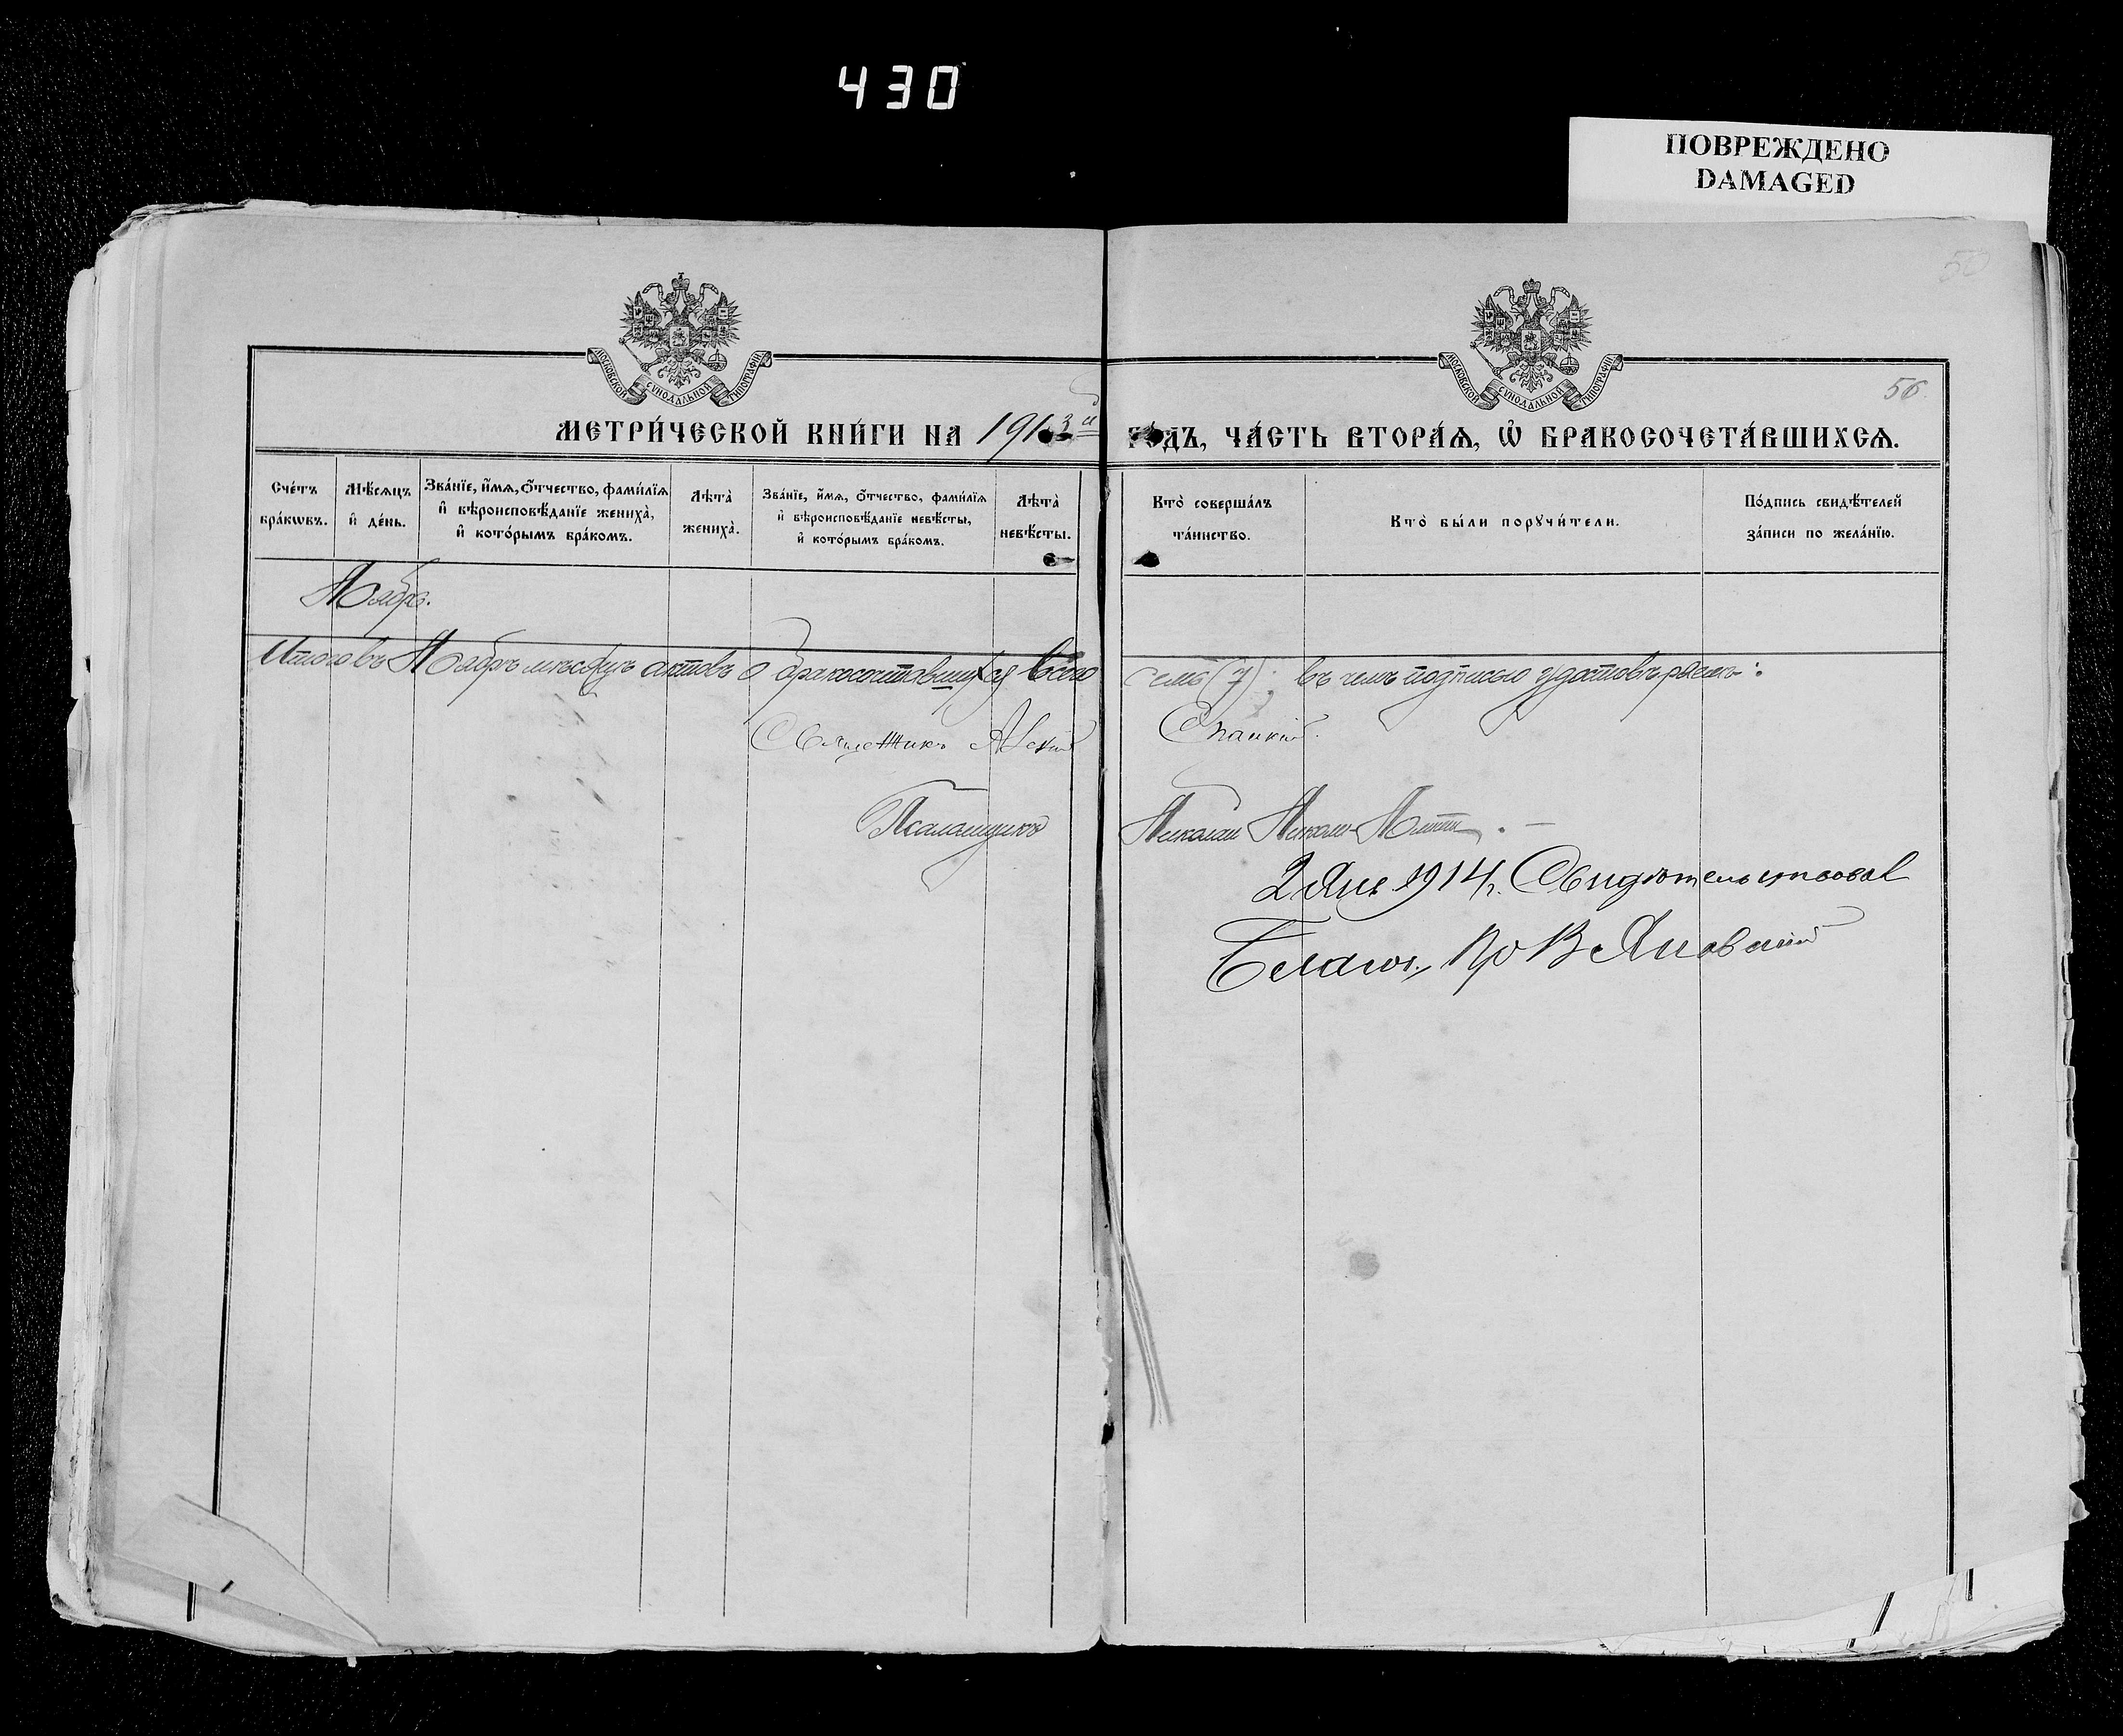 430
ПОВРЕЖДЕНО
DAMAGED
МОСКОВСКОЙ СѴНОДАЛЬНОЙ ТИПОГРАФІИ
МОСКОВСКОЙ СѴНОДАЛЬНОЙ ТИПОГРАФІИ
56
МЕТРИ́ЧЕСКОЙ КНИ́ГИ НА 1913й ГОДЪ, ЧА́СТЬ ВТОРА́Ѧ, Ѡ҆ БРАКОСОЧЕТА́ВШИХСѦ.
Сче́тъ бра́кѡвъ.
Мѣ́сѧцъ и҆ де́нь.
Зва́нїе, и҆́мѧ, ѻ҆́тчество, фами́лїѧ и҆ вѣроисповѣ́данїе жениха̀, и҆ кото́рымъ бра́комъ.
Лѣта̀ жениха̀.
Зва́нїе, и҆́мѧ, ѻ҆́тчество, фами́лїѧ и҆ вѣроисповѣ́данїе невѣ́сты, и҆ кото́рымъ бра́комъ.
Лѣта̀ невѣ́сты.
Кто̀ соверша́лъ та́инство.
Кто̀ бы́ли порꙋчи́тели.
По́дпись свидѣ́телей за́писи по жела́нїю.
Ноябрь.
Итого въ Ноябрѣ мѣсяцѣ актовъ о бракосочетавшихся всего семь (7); въ чемъ подписью удостовѣряемъ:
Священникъ
Псаломщикъ Николай
2 Янв 1914 г. Свидѣтельствовал
Благоч. Пр В Яновскій